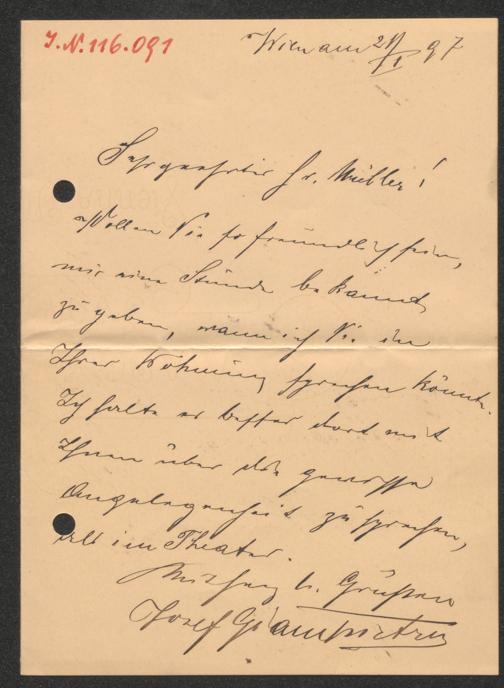 J.N. 116.091
Wien am 21/1 97
Sehrgeehrter Hr. Müller!
Wollen Sie so freundlich sein,
mir eine Stunde bekannt
zu geben, wann ich Sie in
Ihrer Wohnung sprechen könnte.
Ich halte es besser dort mit
Ihnen über die gewisse
Angelegenheit zu sprechen,
als im Theater.
Mit herzl. Grüßen
Josef Giampietro